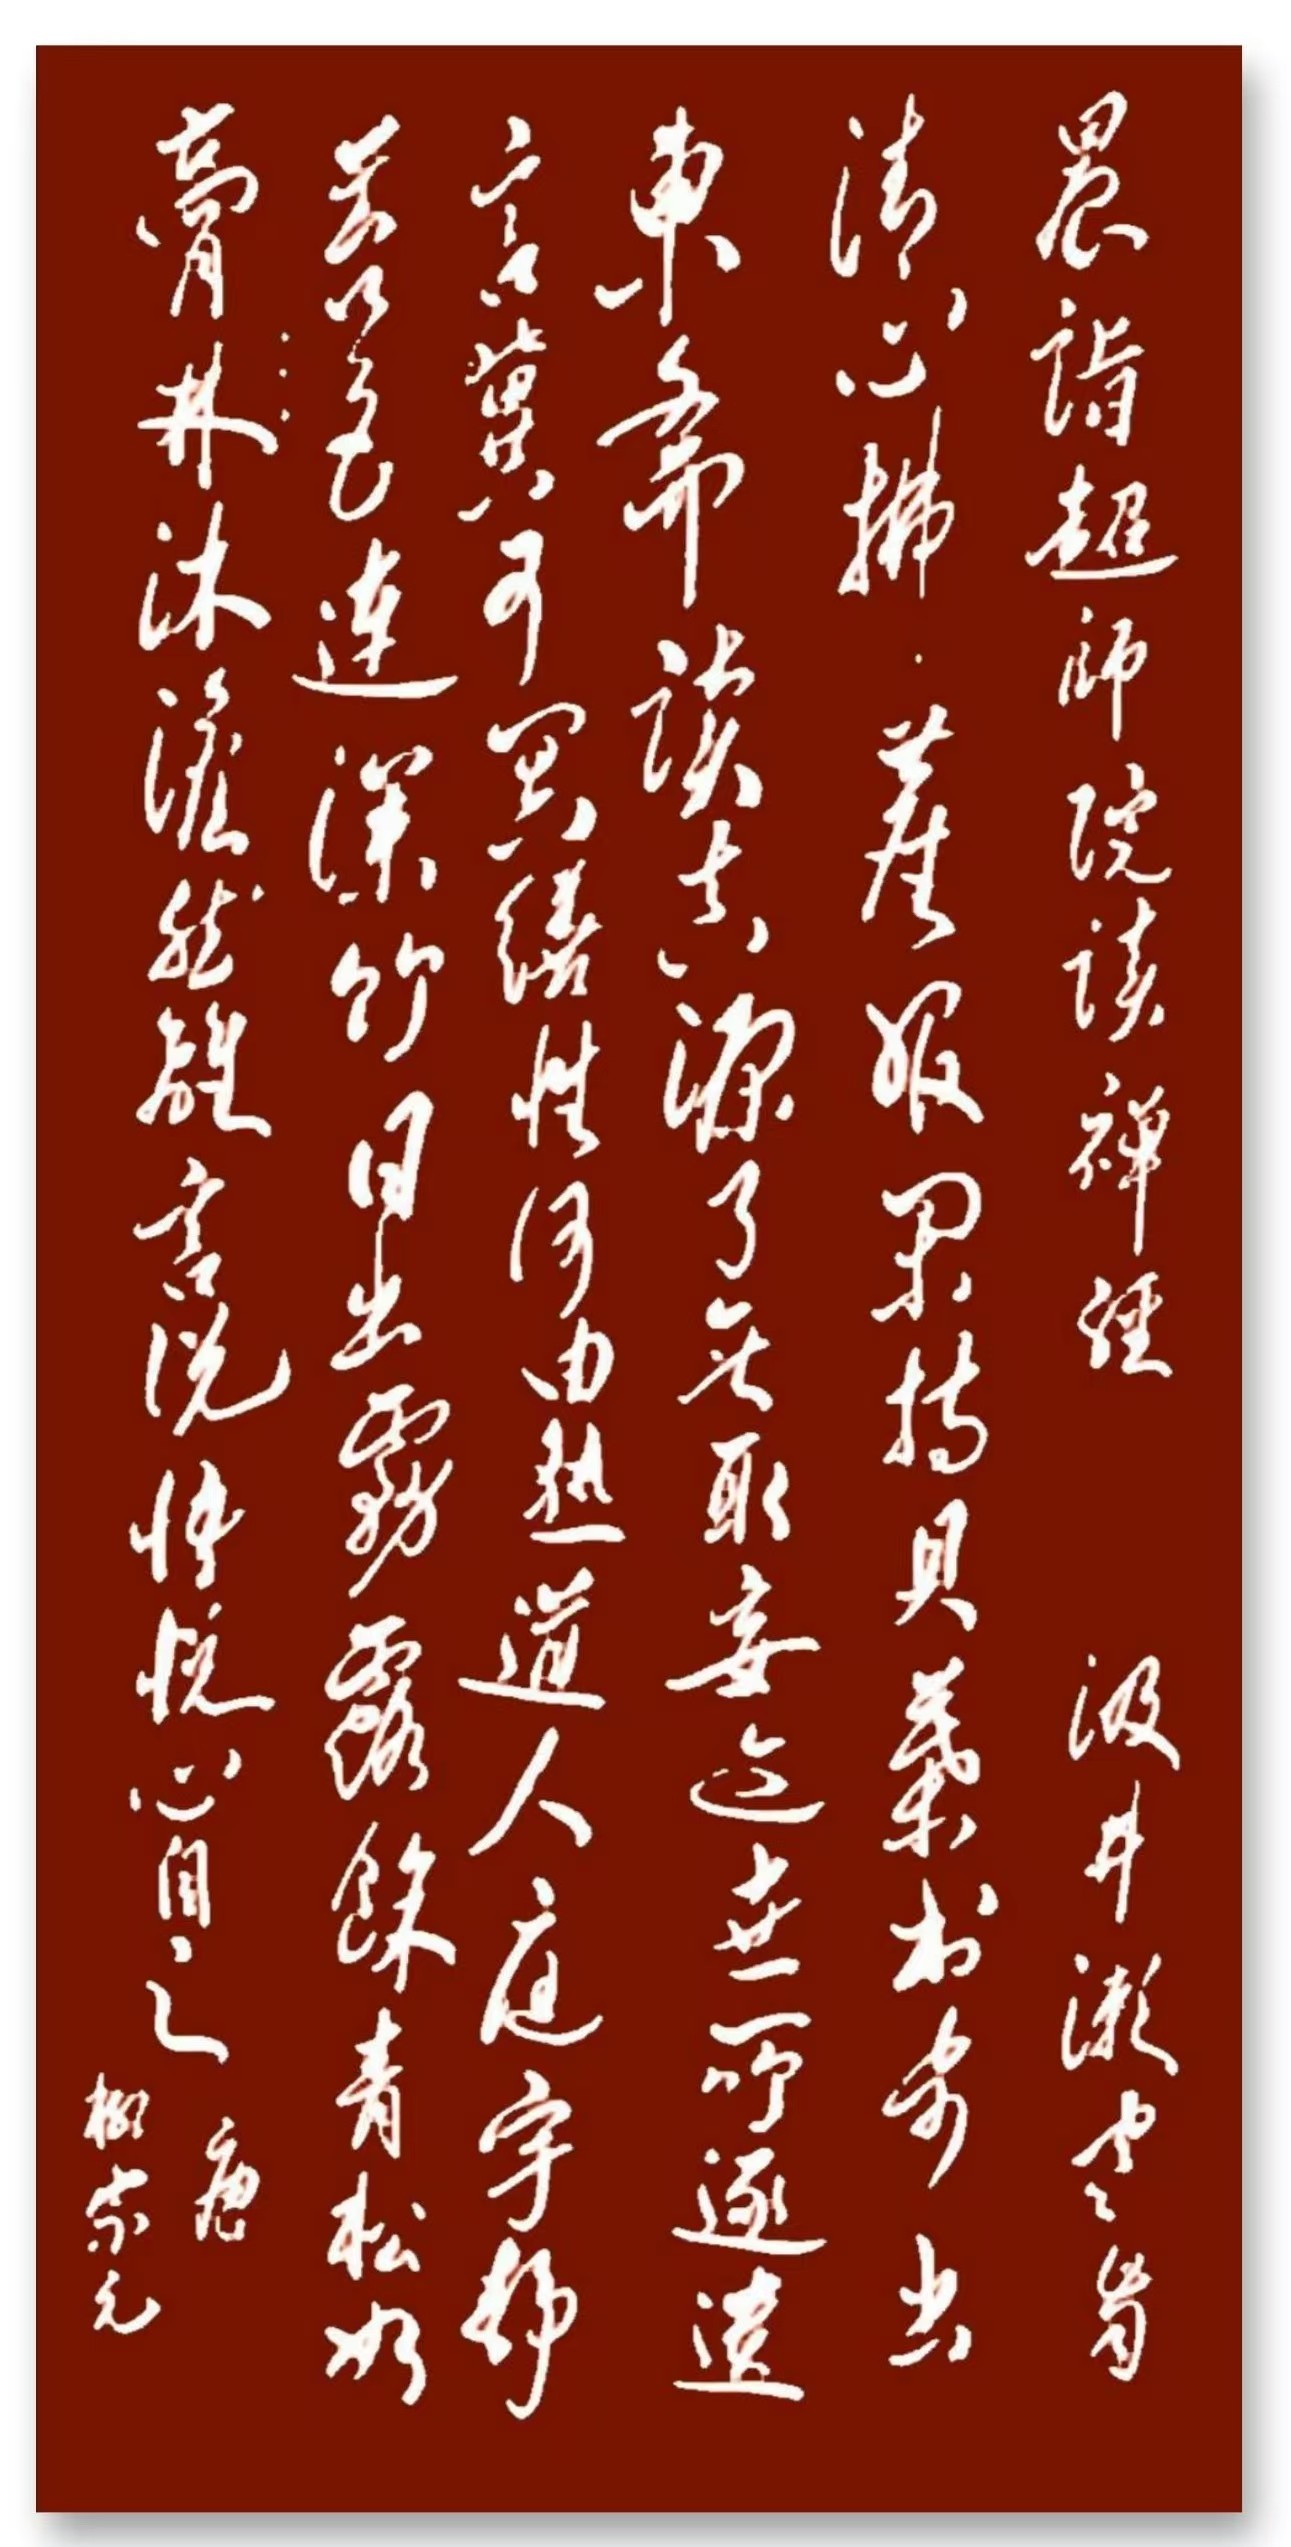 晨詣超師院讀禪經 汲井漱寒齒
清心拂塵服閑持貝葉書步出
東齋讀真源了無取妄迹世所逐遺
言冀可冥繕性何由熟道人庭宇靜
苔色連深竹日出霧露餘青松如
膏林沐澹然離言說悟悅心自足
唐
柳宗元